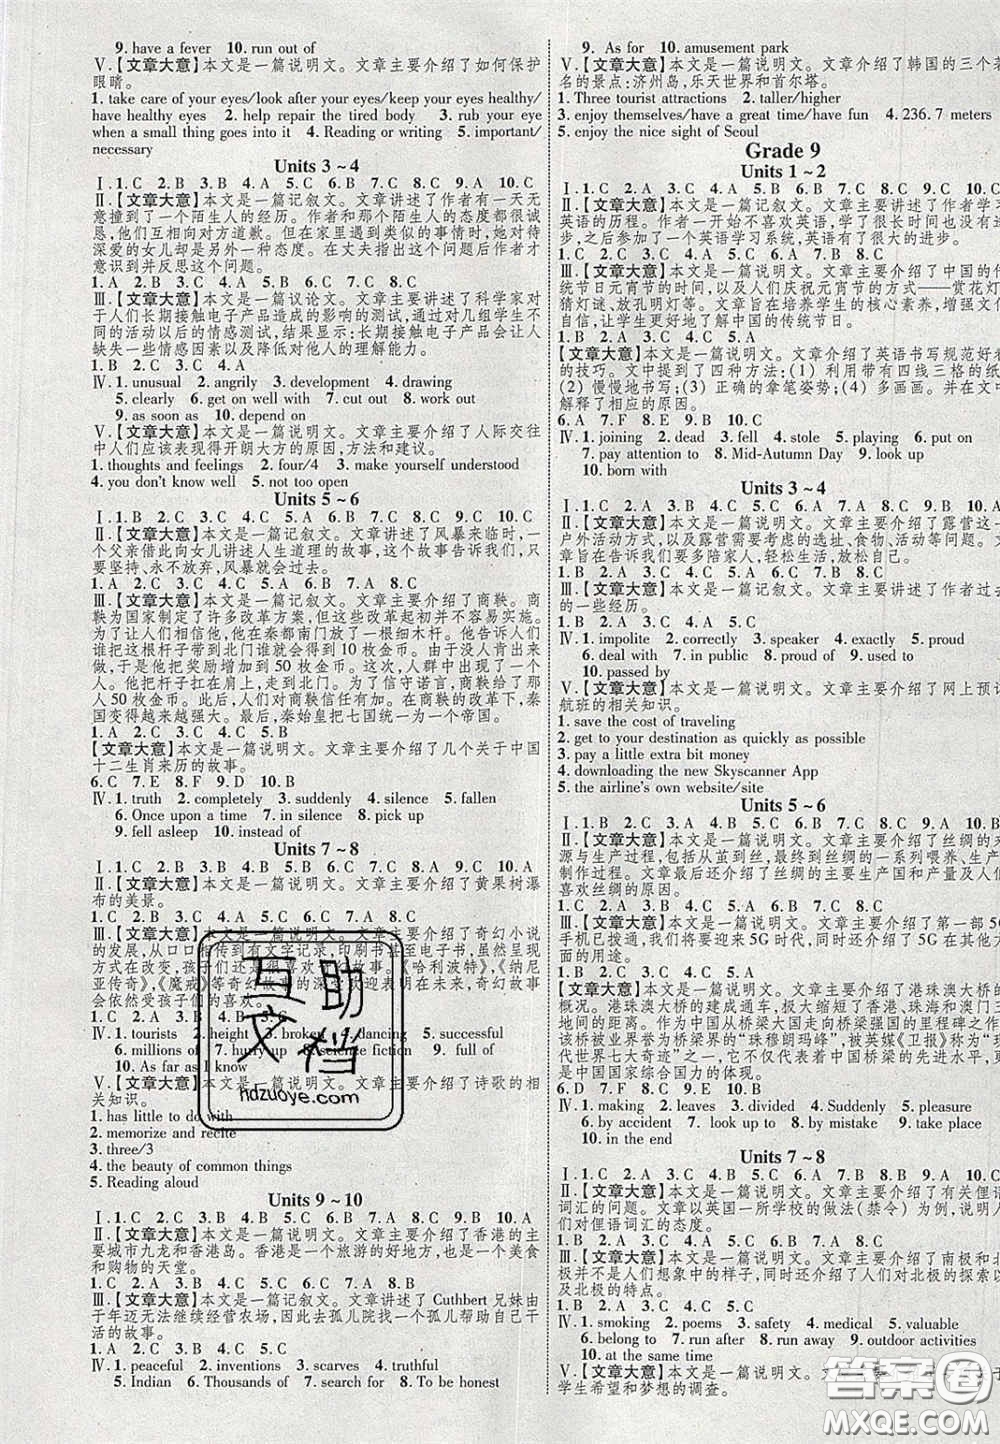 9. have a fever 10. run out of
Ⅴ.【文章大意】本文是一篇说明文。文章主要介绍了如何保护
眼睛。
1. take care of your eyes/look after your eyes/keep your eyes healthy/
have healthy eyes 2. help repair the tired body 3. rub your eye
when a small thing goes into it 4. Reading or writing 5. important/
necessary
Units 3~4
Ⅰ. 1. C 2. B 3. B 4. A 5. C 6. B 7. C 8. C 9. A 10. C
Ⅱ.【文章大意】本文是一篇记叙文。文章讲述了作者有一天无
意撞到了一个陌生人的经历。作者和陌生人的态度都很诚
恳,他们互相向对方道歉。但在家里遇到类似的事情时,她对待
深爱的女儿却是另外一种态度。在丈夫指出这个问题后作者才
意识到并反思这个问题。
1. A 2. B 3. C 4. A 5. C 6. A 7. B 8. C
Ⅲ.【文章大意】本文是一篇议论文。文章主要讲述了科学家对
于人们长期接触电子产品造成的影响的测试,通过对几组学生不
同的活动以后的情感测试,结果显示:长期接触电子产品会让人
缺失一些情感因素以及降低对他人的理解能力。
1. B 2. A 3. A 4. C
Ⅳ. 1. unusual 2. angrily 3. development 4. drawing
5. clearly 6. get on well with 7. cut out 8. work out
9. as soon as 10. depend on
Ⅴ.【文章大意】本文是一篇说明文。文章介绍了人际交往
中人们应该表现得开朗大方的原因,方法和建议。
1. thoughts and feelings 2. four/4 3. make yourself understood
4. you don't know well 5. not too open
Units 5~6
Ⅰ. 1. B 2. C 3. A 4. A 5. C 6. B 7. B 8. C 9. B 10. C
Ⅱ.【文章大意】本文是一篇记叙文。文章讲述了风暴来临时,一
个父亲借此向女儿讲述人生道理的故事,这个故事告诉我们,只
要坚持、永不放弃,风暴就会过去。
1. A 2. C 3. A 4. B 5. B 6. A 7. B 8. C
Ⅲ.【文章大意】本文是一篇记叙文。文章主要介绍了商鞅。商
鞅为国家制定了许多改革方案,但是没有人相信会真的实施。
为了让人们相信他,他在秦都南门放了一根细木杆。他告诉人们
谁把杆子带到北门谁就会得到 10 枚金币。由于没人肯出来
做,他把奖励增加到 50 枚金币。这次,人群中出现了一个强壮的
男人。他把杆子扛在肩上,走到北门。为了信守诺言,商鞅给了
他 50 枚金币。从此人们对商鞅信任有加。在商鞅的改革下,秦
国变得越来越强大。最后,秦始皇把七国统一为一个帝国。
1. A 2. C 3. A 4. C 5. C
【文章大意】本文是一篇说明文。文章主要介绍了几个关于中国
十二生肖来历的故事。
6. C 7. E 8. F 9. D 10. B
Ⅳ. 1. truth 2. completely 3. suddenly 4. silence 5. fallen
6. Once upon a time 7. in silence 8. pick up
9. fell asleep 10. instead of
Units 7~8
Ⅰ. 1. C 2. B 3. B 4. B 5. B 6. C 7. C 8. A 9. C 10. A
Ⅱ.【文章大意】本文是一篇说明文。文章主要介绍了黄果树瀑
布的美景。
1. C 2. C 3. B 4. A 5. A 6. C 7. B 8. C
Ⅲ.【文章大意】本文是一篇说明文。文章主要介绍了奇幻小说
的发展,从口口相传到有文字记录,印刷书甚至电子书,虽然呈现
方式在改变,孩子们还是很喜欢奇幻故事。《哈利波特》,《纳尼
亚传奇》,《魔戒》等奇幻故事的深受欢迎表明在未来,奇幻故事
会依然受孩子们的喜欢。
1. C 2. A 3. B 4. B 5. C
Ⅳ. 1. tourists 2. height 3. broken 4. dancing 5. successful
6. millions of 7. hurry up 8. science fiction 9. full of
10. As far as I know
Ⅴ.【文章大意】本文是一篇说明文。文章主要介绍了诗歌的相
关知识。
1. has little to do with
2. memorize and recite
3. three/3
4. the beauty of common things
5. Reading aloud
Units 9~10
Ⅰ. 1. C 2. C 3. B 4. A 5. B 6. C 7. C 8. B 9. B 10. A
Ⅱ.【文章大意】本文是一篇说明文。文章主要介绍了香港的主
要城市九龙和香港岛。香港是一个旅游的好地方,也是一个美食
和购物的天堂。
1. C 2. C 3. A 4. B 5. C 6. C 7. A 8. B
Ⅲ.【文章大意】本文是一篇记叙文。文章讲述了 Cuthbert 兄妹由
于年迈无法继续经营农场,因此去孤儿院找一个孤儿帮助自己干
活的故事。
1. B 2. B 3. C 4. C
Ⅳ. 1. peaceful 2. inventions 3. scarves 4. truthful
5. Indian 6. Thousands of 7. search for 8. To be honest
9. As for 10. amusement park
Ⅴ.【文章大意】本文是一篇说明文。文章介绍了韩国的三个著
名的景点:济州岛,乐天世界和首尔塔。
1. Three tourist attractions 2. taller/higher
3. enjoy themselves/have a great time/have fun 4. 236. 7 meters
5. enjoy the nice sight of Seoul
Grade 9
Units 1~2
Ⅰ. 1. B 2. A 3. C 4. A 5. C 6. A 7. B 8. B 9. B 10. C
Ⅱ.【文章大意】本文是一篇记叙文。文章主要讲述了作者学习
英语的历程。作者一开始不喜欢英语,学了很长时间也没有进
步,之后参加了一个英语学习系统,英语有了很大的进步。
1. C 2. C 3. A 4. B 5. C 6. A 7. B 8. A
Ⅲ.【文章大意】本文是一篇说明文。文章主要介绍了中国的传
统节日元宵节的时间,以及人们庆祝元宵节的方式——赏花灯
猜灯谜、放孔明灯等。文章旨在培养学生的核心素养,增强文化
自信,让学生更好地了解中国的传统节日。
1. B 2. B 3. A 4. C 5. A
【文章大意】本文是一篇说明文。文章介绍了英语书写规范好看
的技巧。文中提到了四种方法:(1) 利用带有四线三格的纸
(2) 慢慢地书写;(3) 正确的拿笔姿势;(4) 多画画。并在文中
解释了相应的原因。
6. A 7. F 8. B 9. D 10. C
Ⅳ. 1. joining 2. dead 3. fell 4. stole 5. playing 6. put on
7. pay attention to 8. Mid-Autumn Day 9. look up
10. born with
Units 3~4
Ⅰ. 1. C 2. A 3. A 4. C 5. B 6. A 7. C 8. A 9. B 10. A
Ⅱ.【文章大意】本文是一篇说明文。文章主要介绍了露营这一
户外活动方式,以及露营需要考虑的选址、食物、活动等问题。文
章旨在告诉我们要多陪家人,轻松生活,放松自己。
1. B 2. A 3. C 4. A 5. B 6. B 7. A 8. C
Ⅲ.【文章大意】本文是一篇记叙文。文章主要讲述了作者过去
的一些经历。
1. B 2. C 3. A 4. C
Ⅳ. 1. impolite 2. correctly 3. speaker 4. exactly 5. proud
6. deal with 7. in public 8. proud of 9. used to
10. passed by
Ⅴ.【文章大意】本文是一篇说明文。文章主要介绍了网上预订
航班的相关知识。
1. save the cost of traveling
2. get to your destination as quickly as possible
3. pay a little extra bit money
4. downloading the new Skyscanner App
5. the airline's own website/site
Units 5~6
Ⅰ. 1. C 2. B 3. A 4. B 5. C 6. B 7. C 8. C 9. A 10. A
Ⅱ.【文章大意】本文是一篇说明文。文章主要介绍了丝绸的来
源与生产过程,包括从茧到丝,最终到丝绸的一系列喂养、生产、
制作过程。文章最后还介绍了丝绸的主要生产国和产量及人们
喜欢丝绸的原因。
Ⅲ.【文章大意】本文是一篇说明文。文章主要介绍了第一部 5G
手机已拨通,我们将要迎来 5G 时代,同时还介绍了 5G 在其他方
面的用途。
【文章大意】本文是一篇说明文。文章主要介绍了港珠澳大桥的
概况。港珠澳大桥的建成通车,极大缩短了香港、珠海和澳门三
地间的距离。作为中国从桥梁大国走向桥梁强国的里程碑之作,
该桥被业界誉为桥梁界的“珠穆朗玛峰”,被英媒《卫报》称为“现
代世界七大奇迹”之一,它不仅代表了中国桥梁的先进水平,更
是中国国家综合国力的体现。
6. D 7. F 8. C 9. E 10. B
Ⅳ. 1. making 2. leaves 3. divided 4. Suddenly 5. pleasure
6. by accident 7. look up to 8. by mistake 9. take place
10. in the end
Units 7~8
Ⅱ.【文章大意】本文是一篇说明文。文章主要介绍了有关俚语
词汇的问题。文章以英国一所学校的做法(禁令)为例,说明人
们对俚语词汇的态度。
Ⅲ.【文章大意】本文是一篇说明文。文章主要介绍了南极和北
极并不是人们想象中的样子,同时还介绍了人们对北极的探索以
及北极的特点。
1. B 2. C 3. C 4. B 5. A
Ⅳ. 1. smoking 2. poems 3. safety 4. medical 5. voices
6. belong to 7. prefer to 8. run away 9. outdoor activities
10. at the same time
学生希望和梦想的调查。
互助
文档
hdzuoye.com
答案圈
MXQE.COM